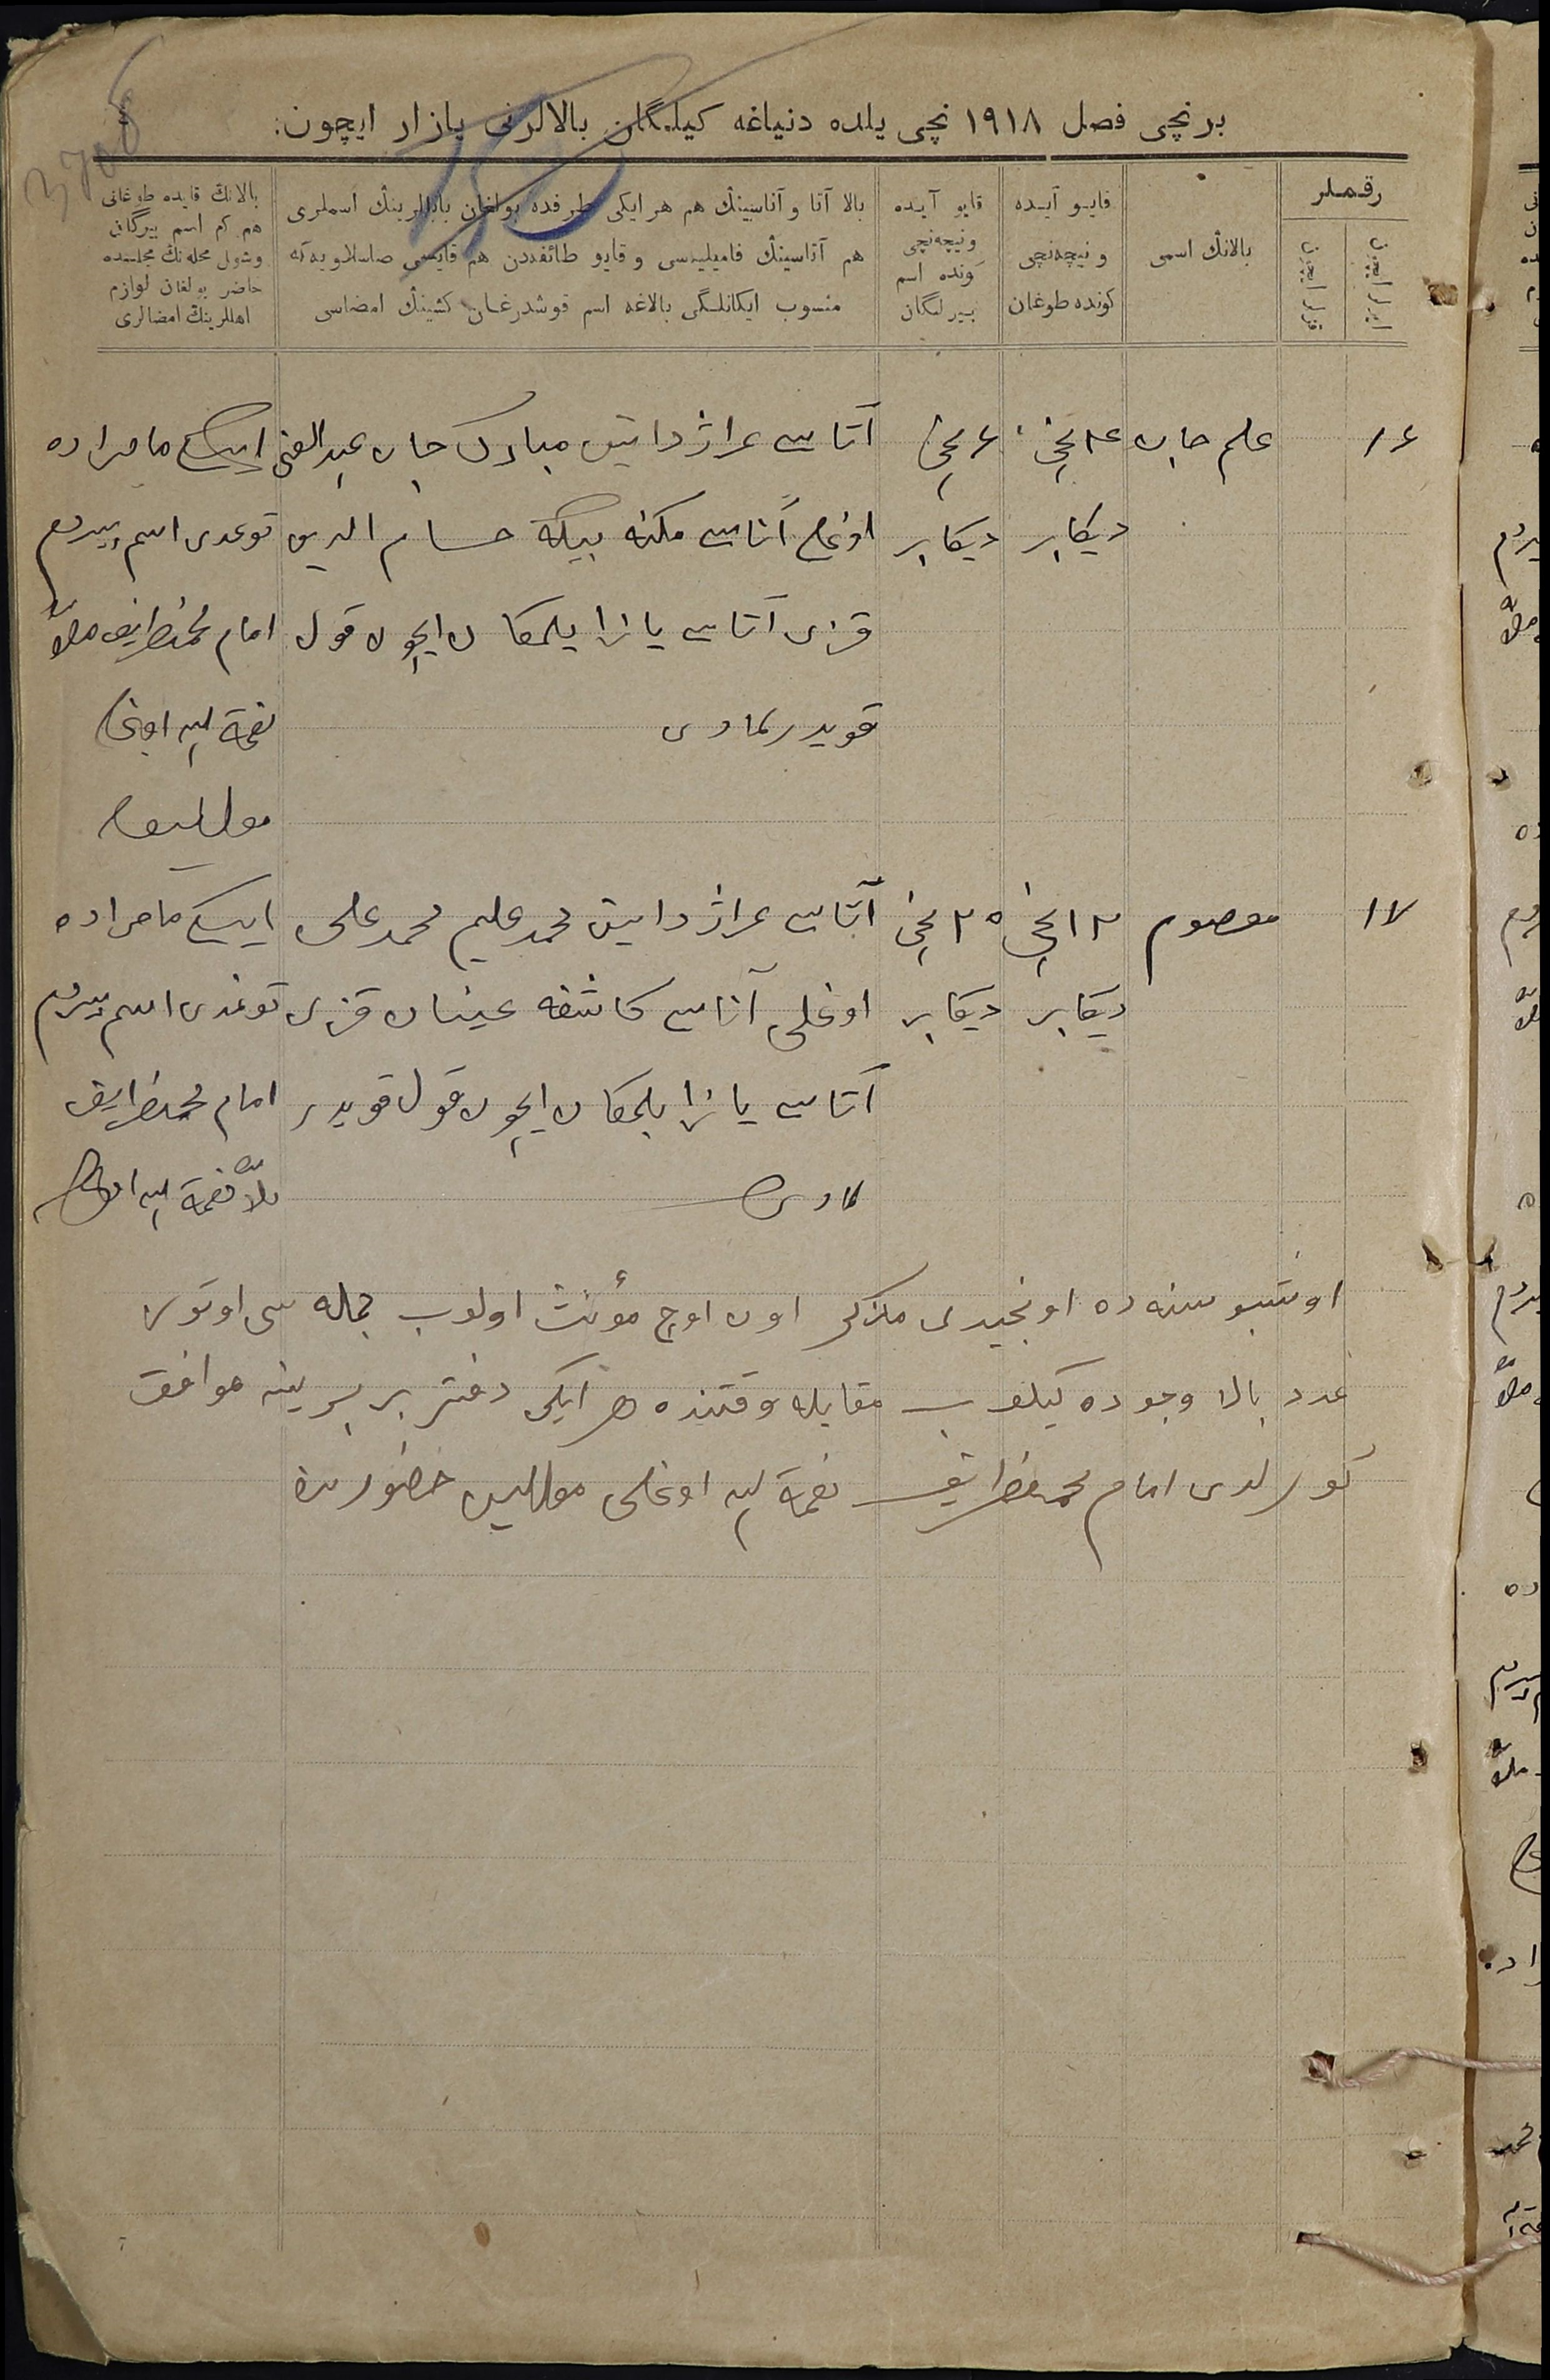 برنچی فصل ۱۹۱۸ نچی یلده دنیاغه کیلگان بالالرنی یازار ایچون:
رقملر
بالانڭ اسمی
قایو آیده
ونیچه‌نچی
کونده طوغان
قایو آیده
ونیچه‌نچی
کونده اسم
بیرلگان
بالا آتا و آناسینڭ هم هر ایکی طرفده بولغان بابالرینڭ اسملری
هم آناسینڭ فامیلیه‌سی و قایو طائفه‌دن هم قایسی صاسلاویه‌گه
منسوب ایکانلگی بالاغه اسم قوشدرغان کشینڭ امضاسی
بالانڭ قایده طوغانی
هم کم اسم بیرگانی
وشول محله‌نڭ مجلسده
حاضر بولغان لوازم
اهللرینڭ امضالری
۱۶ علم جان دیکابر دیکابر
آتاسی غراژدانین مبارک جان عبدالغنی
اوغلی آناسی مکنه بیکه حسام الدین
قزی آتاسی یازا بلمکان ایچون قول
قویدرلمادی
ایسکی مامراده
توغدی اسم بیردم
امام محمدظریف ملا
نعمة الله اوغلی
۱۷ معصوم ۱۲ نچی ۲۵ نچی
دیکابر دیکابر
آتاسی غراژدانین محمد علیم محمد علی
اوغلی آناسی کاشفه عینان قزی
آتاسی یازا بلمکان ایچون قول قویدر
لمادی
ایسکی مامراده
توغدی اسم بیردم
امام محمدظریف
ملا نعمة الله اوغلی
اوشبو سنه ده اونجیدی مذکر اون اوچ مؤنث اولوب جمله سی اوتوز
عدد بالا وجوده کیلوب مقابله وقتنده هر ایکی دفتر بر برینه موافق
کورلدی امام محمدظریف نعمة الله اوغلی حضورنده